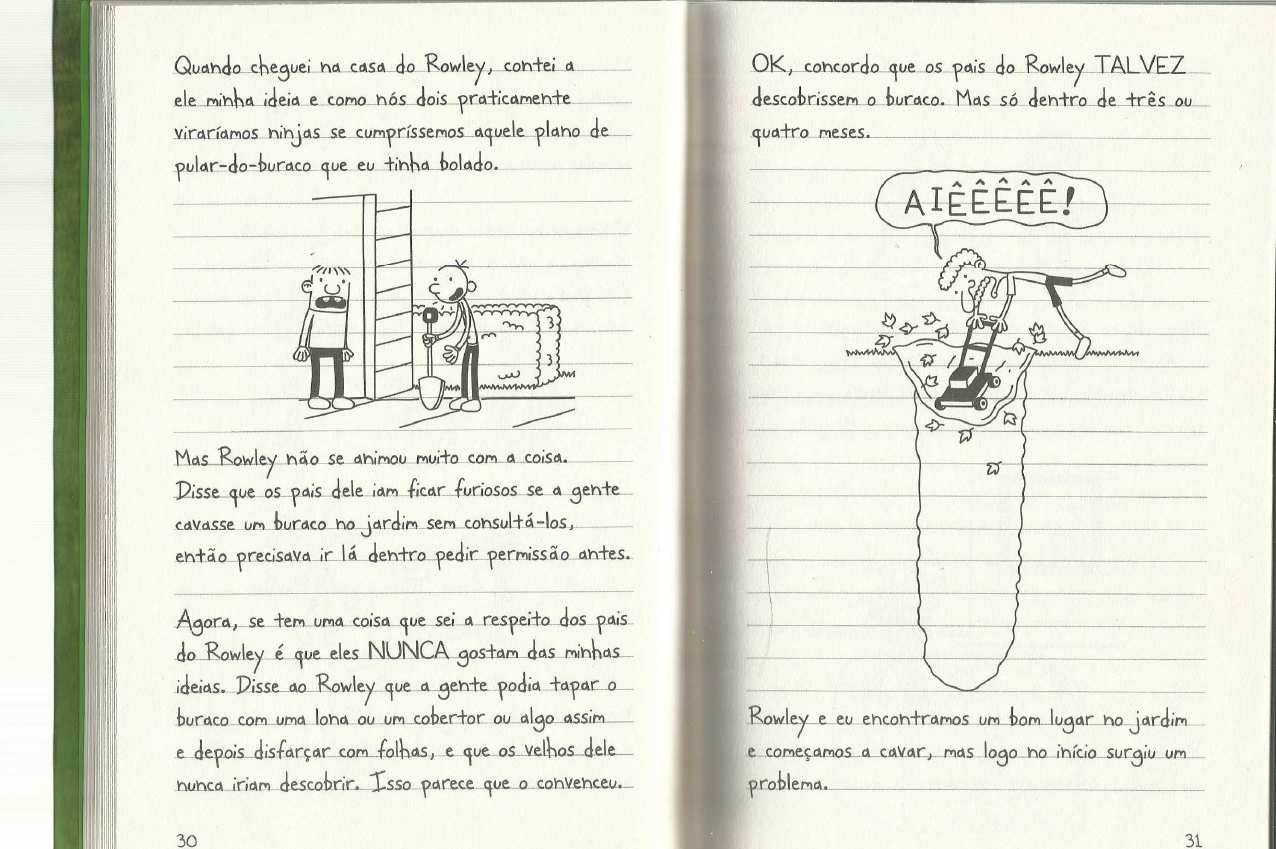 Quando cheguei na casa do Rowley, contei a
ele minha ideia e como nós dois praticamente
viraríamos ninjas se cumpríssemos aquele plano de
pular-do-buraco que eu tinha bolado.
Mas Rowley não se animou muito com a coisa.
Disse que os pais dele iam ficar furiosos se a gente
cavasse um buraco no jardim sem consultá-los,
então precisava ir lá dentro pedir permissão antes.
Agora, se tem uma coisa que sei a respeito dos pais
do Rowley é que eles NUNCA gostam das minhas
ideias. Disse ao Rowley que a gente podia tapar o
buraco com uma lona ou um cobertor ou algo assim
e depois disfarçar com folhas, e que os velhos dele
nunca iriam descobrir. Isso parece que o convenceu.
30
OK, concordo que os pais do Rowley TALVEZ
descobrissem o buraco. Mas só dentro de três ou
quatro meses.
AIÊÊÊÊÊ!
Rowley e eu encontramos um bom lugar no jardim
e começamos a cavar, mas logo no início surgiu um
problema.
31